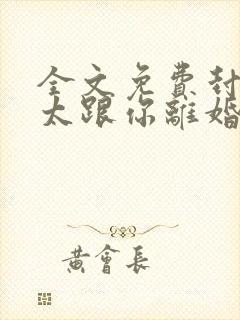 全文免費封
太跟你離婚
黃會長